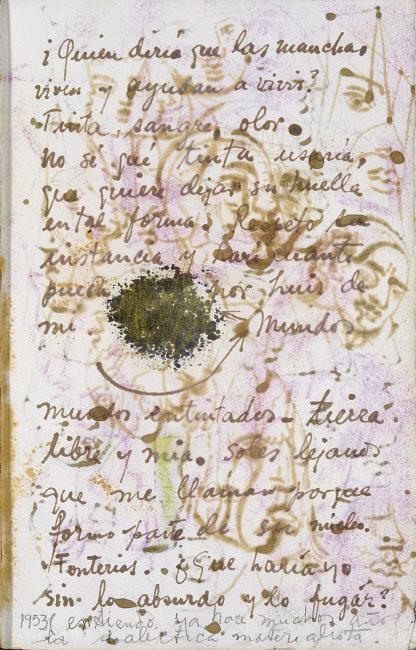 ¡Quien diría que las manchas
viven y ayudan a vivir?
Tinta, sangre, olor.
No sé qué tinta usaría,
que quiere dejar su huella
en tal forma. Respeto su
instancia y haré cuanto
pueda por huir de
mi Mundo.
mundos entintados - tierra
libre y mia. Soles lejanos
que me llaman porque
formo parte de su núcleo.
Tonterias.. ¿Que haría yo
sin lo absurdo y lo fugáz?
1953 entiendo ya hace muchos años
la dialectica materialista.